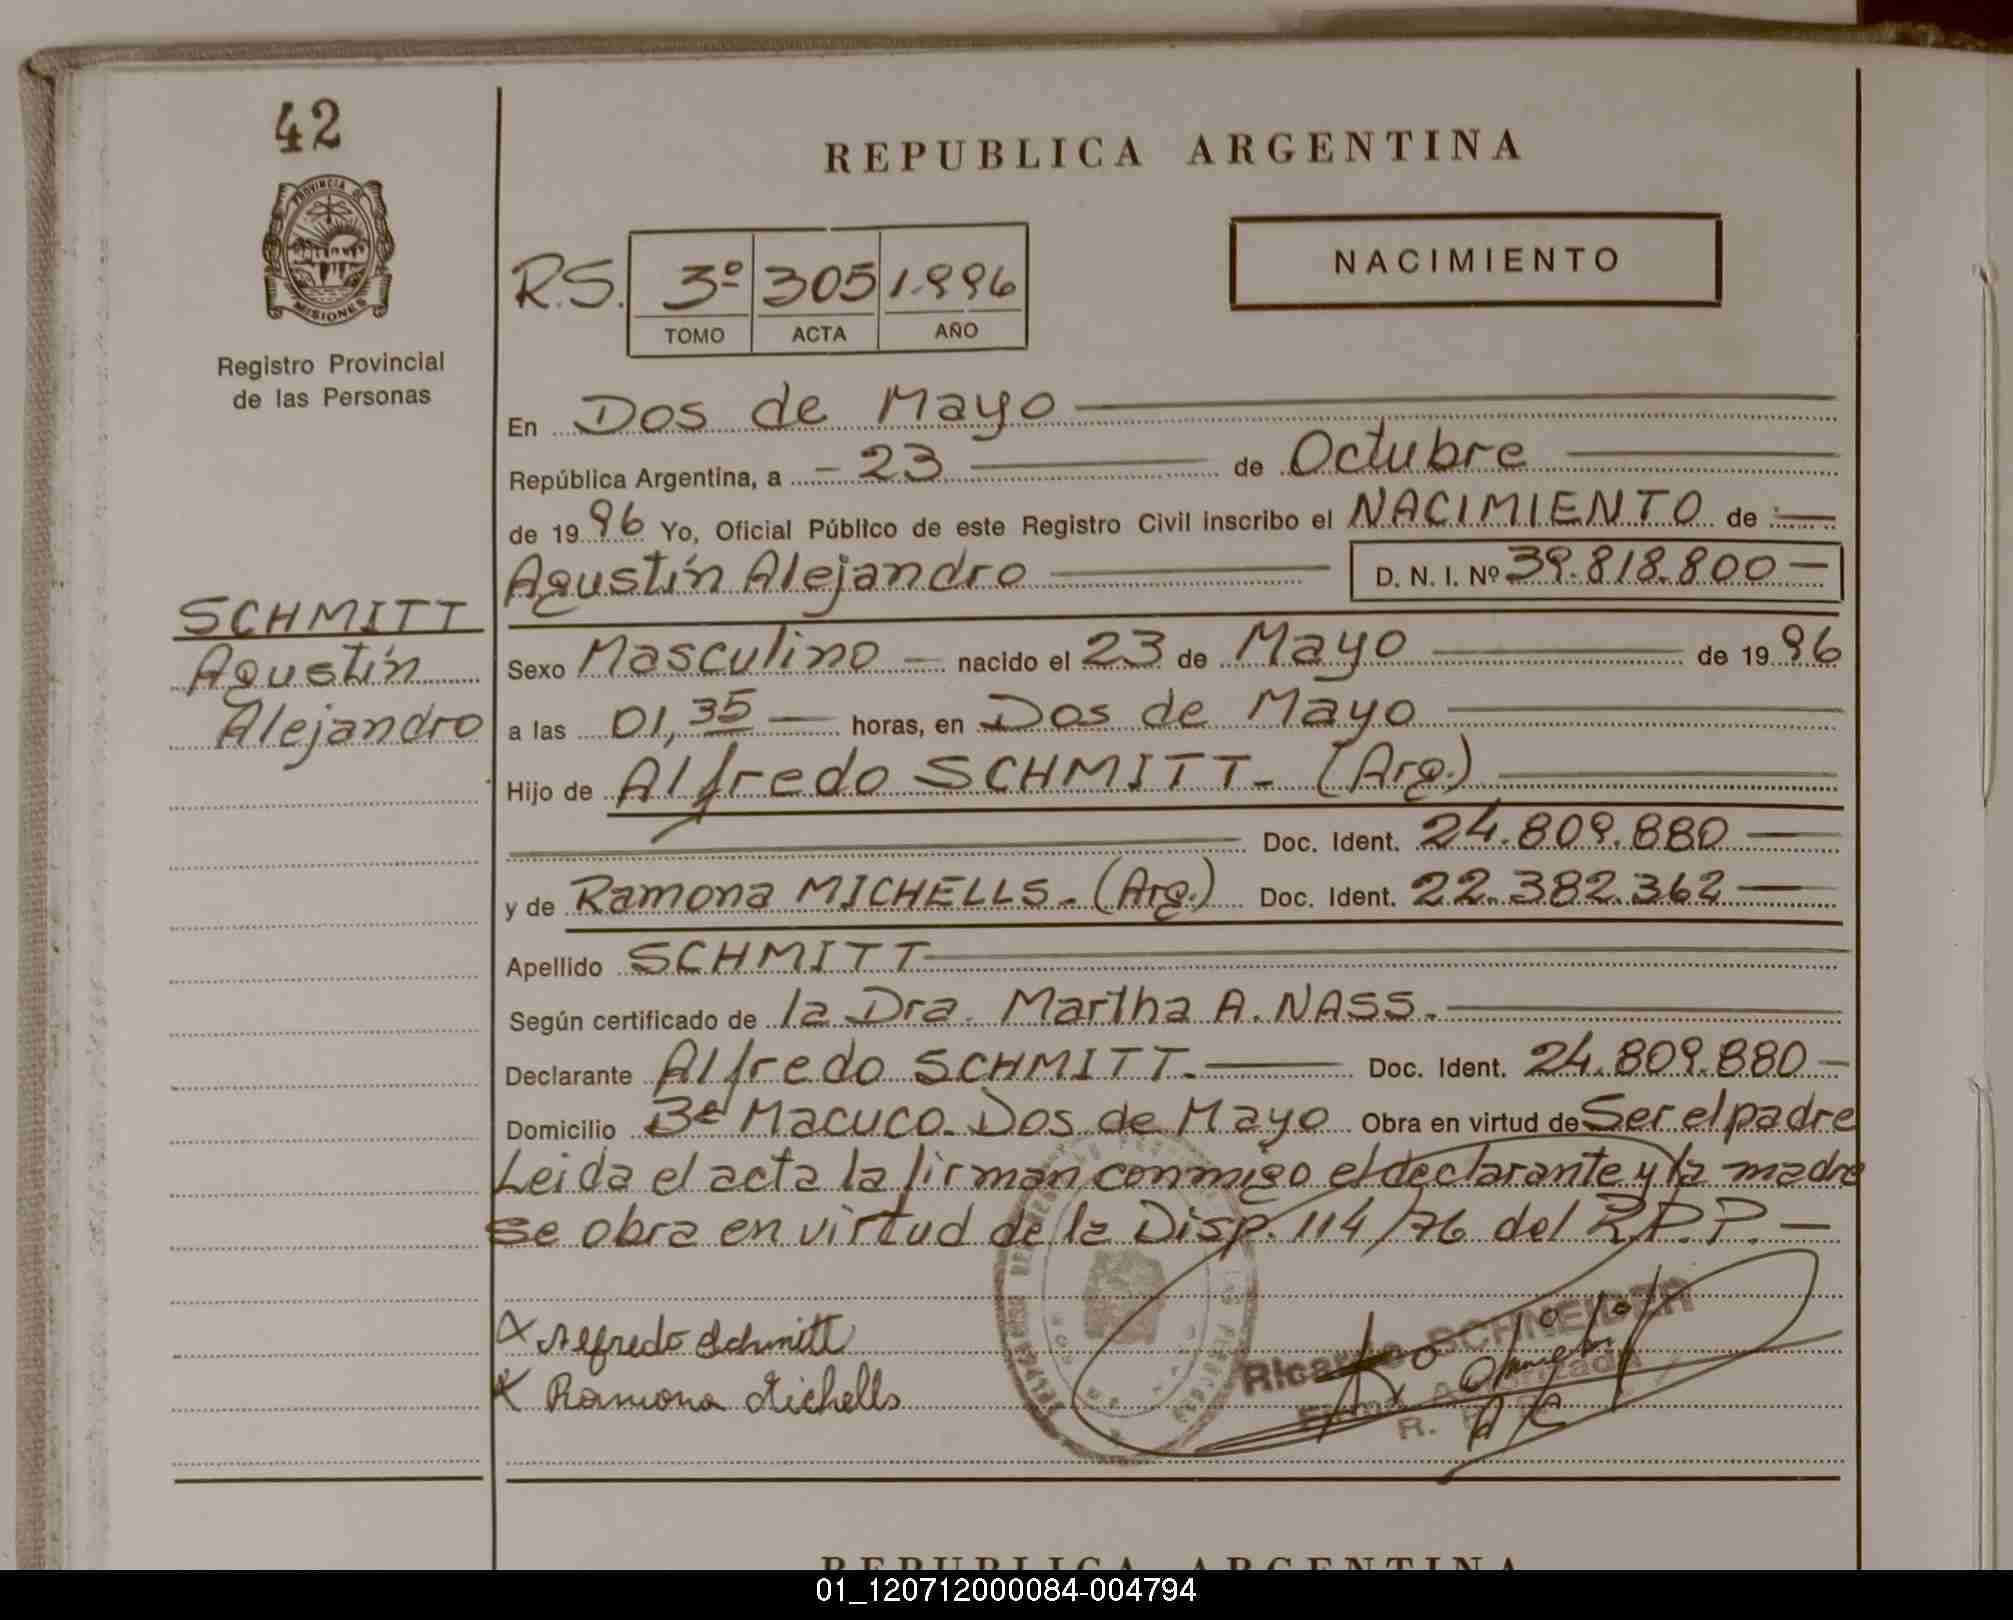 42
PROVINCIA DE
MISIONES
Registro Provincial
de las Personas
REPUBLICA ARGENTINA
NACIMIENTO
R.S. 3º 305 1.996
TOMO ACTA AÑO
En Dos de Mayo
República Argentina, a - 23 de Octubre
de 19 96 Yo, Oficial Público de este Registro Civil inscribo el NACIMIENTO de
Agustín Alejandro D. N. I. Nº 39.818.800
SCHMITT
Agustín
Alejandro
Sexo Masculino nacido el 23 de Mayo de 19 96
a las 01,35 horas, en Dos de Mayo
Hijo de Alfredo SCHMITT. (Arg.)
Doc. Ident. 24.809.880
y de Ramona MICHELLS. (Arg.) Doc. Ident. 22.382.362
Apellido SCHMITT
Según certificado de la Dra. Martha A. NASS.
Declarante Alfredo SCHMITT. Doc. Ident. 24.809.880
Domicilio Bº Macuco. Dos de Mayo Obra en virtud de Ser el padre
Leida el acta la firman conmigo el declarante y la madre
se obra en virtud de la Disp. 114/76 del R.P.P.
X Alfredo Schmitt
X Ramona Michells
Ricardo SCHNEIDER
Firma Autorizada
R.
REPUBLICA ARGENTINA
01_120712000084-004794